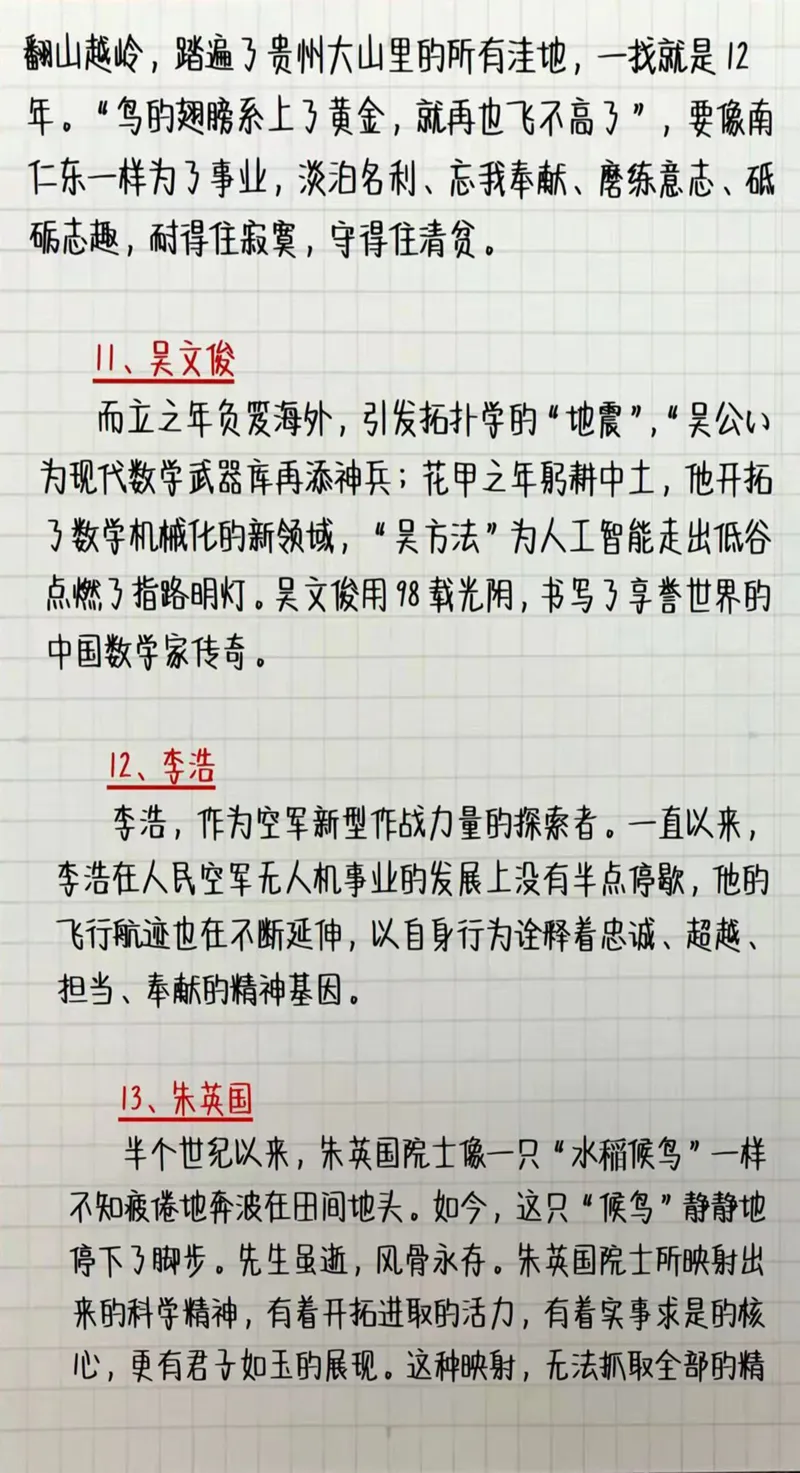 翻山越岭，踏遍了贵州大山里的所有洼地，一找就是12
年。“鸟的翅膀系上了黄金，就再也飞不高了”，要像南
仁东一样为了事业，淡泊名利、忘我奉献、磨练意志、砥
砺志趣，耐得住寂寞，守得住清贫。
11、吴文俊
而立之年负笈海外，引发拓扑学的“地震”，“吴公い
为现代数学武器库再添神兵；花甲之年躬耕中土，他开拓
了数学机械化的新领域，“吴方法”为人工智能走出低谷
点燃了指路明灯。吴文俊用98载光阴，书写了享誉世界的
中国数学家传奇。
12、李浩
李浩，作为空军新型作战力量的探索者。一直以来，
李浩在人民空军无人机事业的发展上没有半点停歇，他的
飞行航迹也在不断延伸，以自身行为诠释着忠诚、超越、
担当、奉献的精神基因。
13、朱英国
半个世纪以来，朱英国院士像一只“水稻候鸟”一样
不知疲倦地奔波在田间地头。如今，这只“候鸟”静静地
停下了脚步。先生虽逝，风骨永存。朱英国院士所映射出
来的科学精神，有着开拓进取的活力，有着实事求是的核
心，更有君子如玉的展现。这种映射，无法抓取全部的精